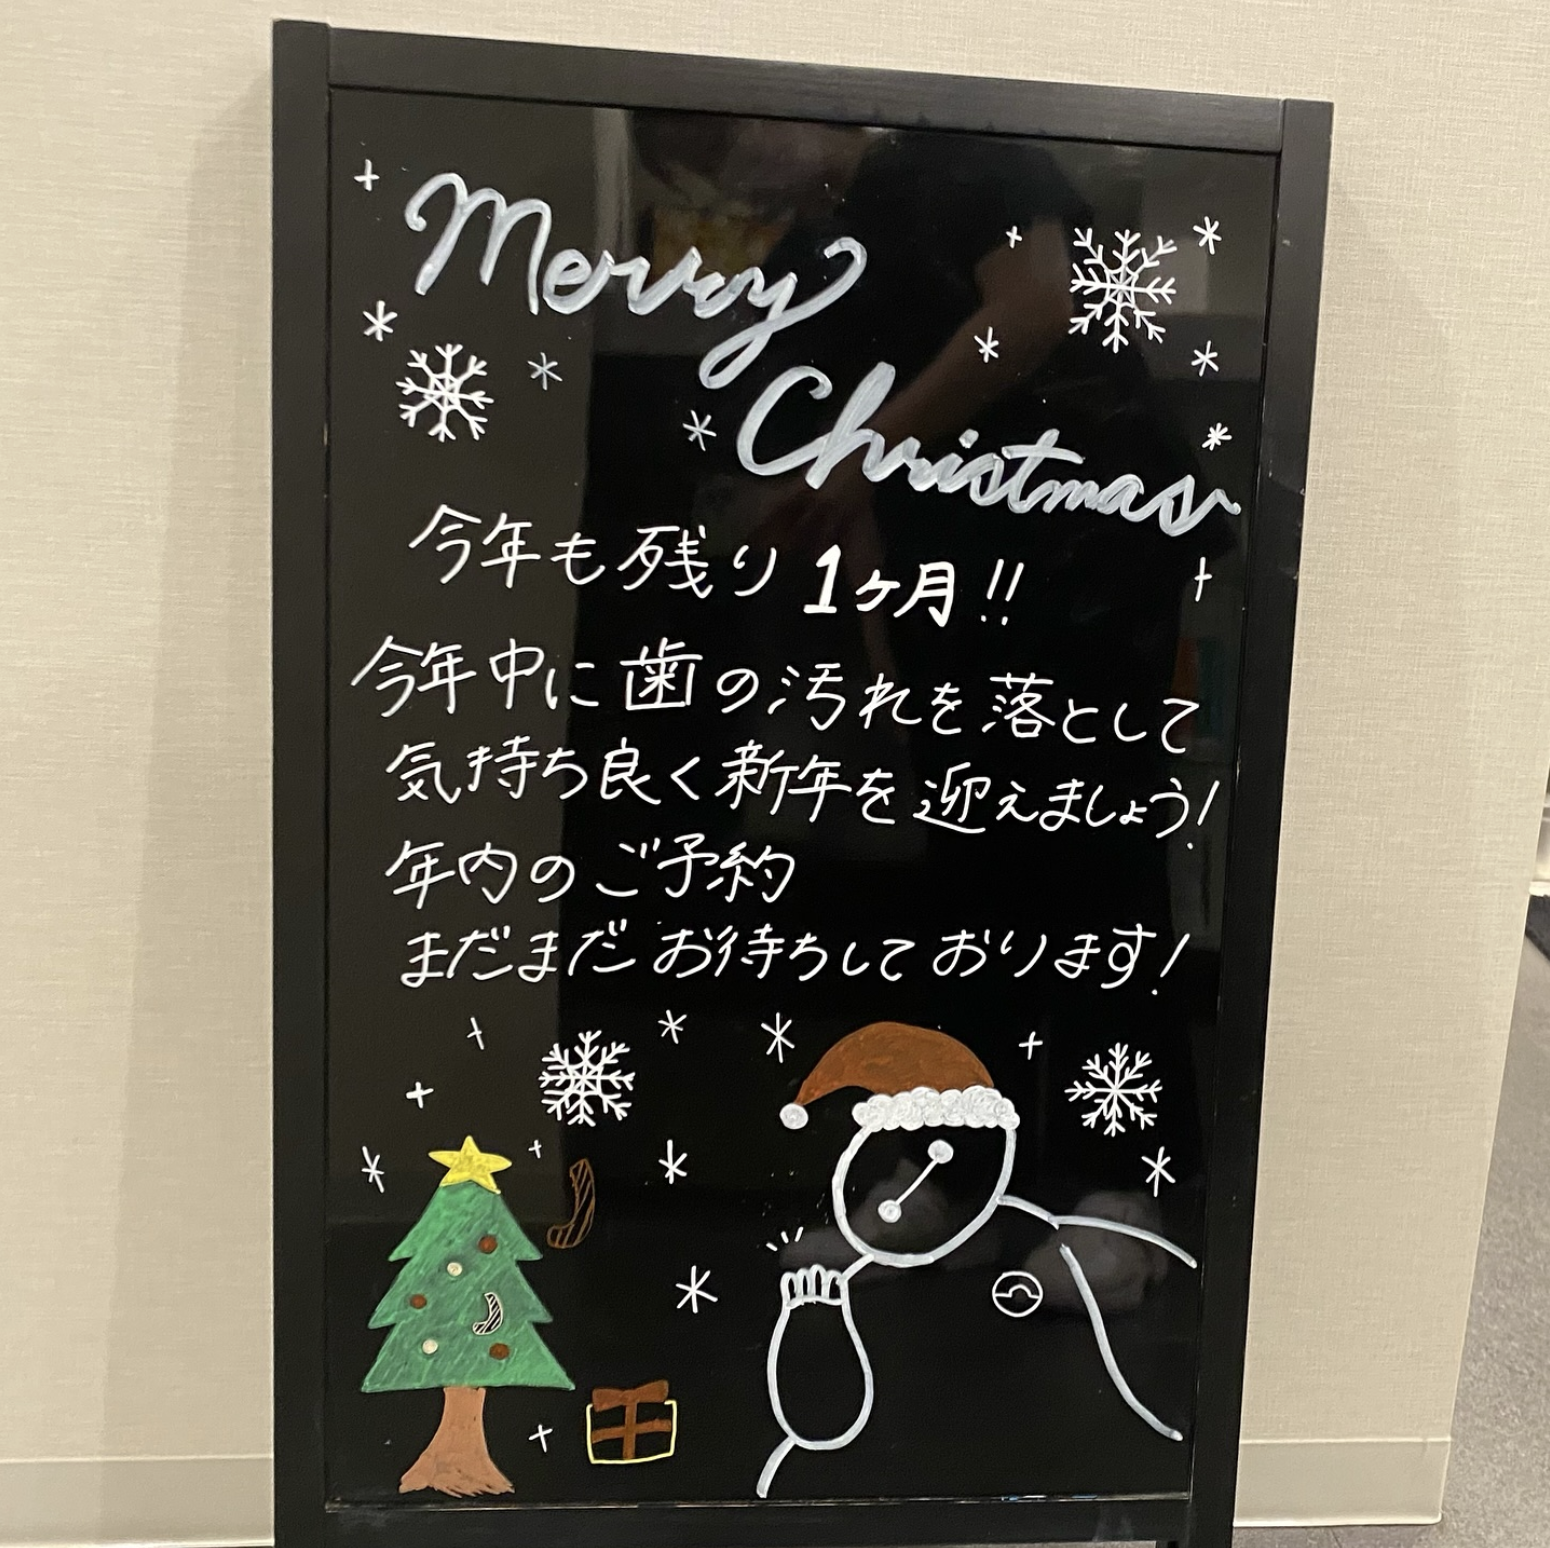 Merry
Christmas
今年も残り1ヶ月!!
今年中に歯の汚れを落として
気持ち良く新年を迎えましょう!
年内のご予約
まだまだお待ちしております!